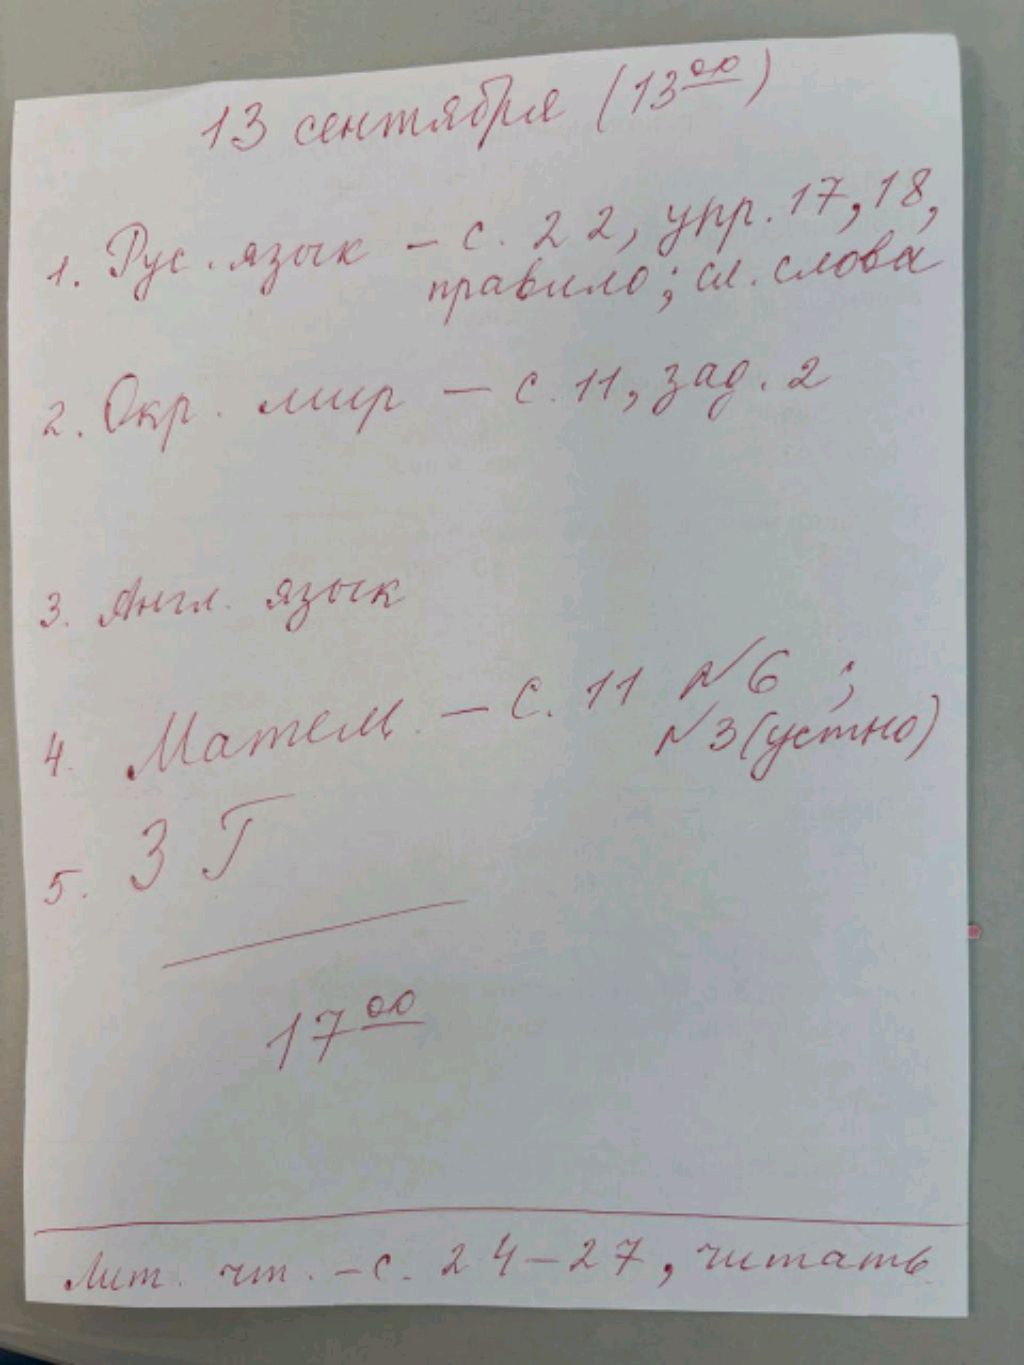 13 сентября (13⁰⁰)
1. Рус. язык – с. 22, упр. 17, 18,
правило; сл. слова
2. Окр. мир – с. 11, зад. 2
3. Англ. язык
4. Матем. – с. 11 №6 ;
№3 (устно)
5. ЗГ
17⁰⁰
Лит. чт. – с. 24–27, читать